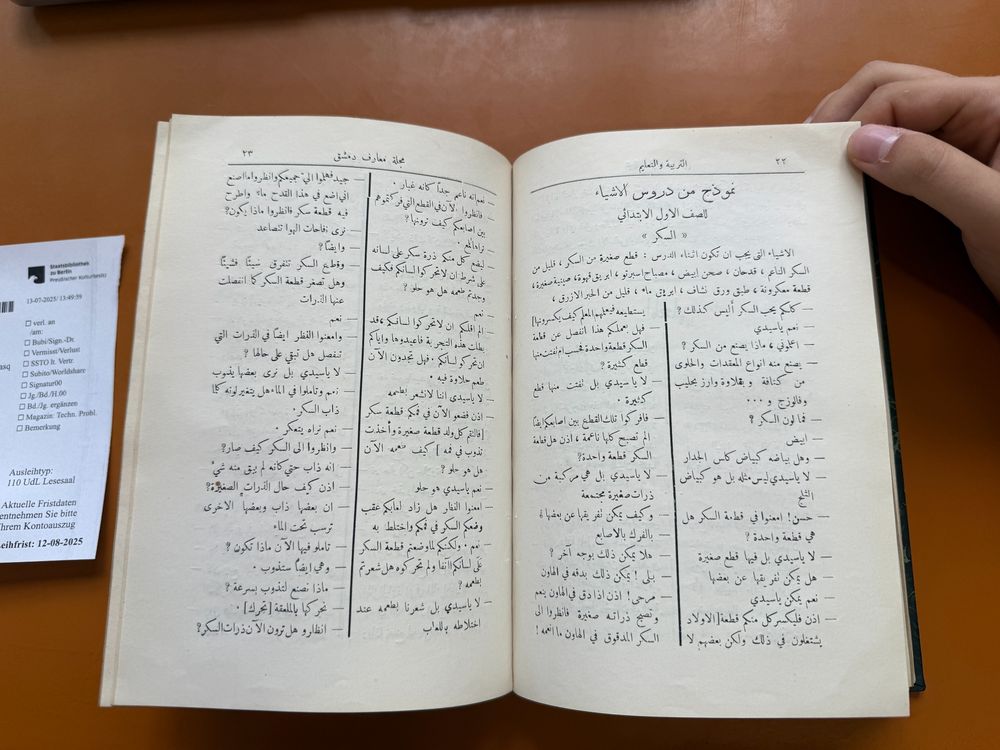 ٢٢
التربية والتعليم
نموذج من دروس الاشياء
للصف الاول الابتدائي
« السكر »
الاشياء التي يجب ان تكون اثناء الدرس : قطع صغيرة من السكر ، قليل من
السكر الناعم ، قدحان ، صحن ابيض ، مصباح اسبرتو ، ابريق قهوة ، صينية صغيرة ،
قطعة معكرونة ، طبق ورق نشاف ، ابريق ماء ، قليل من الحبر الازرق ،
— كلكم يحب السكر أليس كذلك ؟
— نعم ياسيدي
— اعلموني ، ماذا يصنع من السكر ؟
— يصنع منه انواع المعقدات والحلوى
من كنافة و بقلاوة وارز بحليب
وفالوزج و ٠٠٠
— فما لون السكر ؟
— ابيض
— وهل بياضه كبياض كلس الجدار
— لا ياسيدي ليس مثله بل هو كبياض
الثلج
— حسن ! امعنوا في قطعة السكر هل
هي قطعة واحدة ؟
— لا ياسيدي بل فيها قطع صغيرة
— هل يمكن تفريقها عن بعضها
— نعم يمكن ياسيدي
— اذن فليكسر كل منكم قطعة [الاولاد
يشتغلون في ذلك ولكن بعضهم لا
يستطيعه فيعلمهم المعلم كيف يكسرونها]
— فهل بعملكم هذا انفصل عن قطعة
السكر قطعة واحدة فحسب ام نفتت منها
قطع كثيرة ؟
— لا ياسيدي بل نفتت منها قطع
كثيرة ٠
— فافركوا تلك القطع بين اصابعكم ايضا
الم تصبح كلها ناعمة ، اذن هل قطعة
السكر قطعة واحدة ؟
— لا ياسيدي بل هي مركبة من
ذرات صغيرة مجتمعة
— وكيف يمكن تفريقها عن بعضها ؟
— بالفرك بالاصابع
— هلا يمكن ذلك بوجه آخر ؟
— بلى ! يمكن ذلك بدقه في الهاون
— مرحى ! اذن اذا دق في الهاون ينعم
وتصبح ذراته صغيرة فانظروا الى
السكر المدقوق في الهاون ما انعمه !
مجلة معارف دمشق
٢٣
— نعم انه ناعم جداً كانه غبار ٠
— فانظروا الآن في القطع التي فركتموهم
بين اصابعكم كيف ترونها ؟
— نراها تلمع ٠
— ليضع كل منكم ذرة سكر على لسانه
على شرط ان لاتحركوا لسانكم فكيف
وجدتم طعمه هل هو حلو ؟
— نعم
— الم اقل لكم ان لاتحركوا لسانكم ، قد
بطلت هذه التجربة فاعيدوها واياكم
ان تحركوا لسانكم ، فهل تجدون الآن
طعم حلاوة فيه ٠
— لا ياسيدي اننا لانشعر بطعمه
— اذن فضعوا الآن في فمكم قطعة سكر
[فالتقم كل ولد قطعة صغيرة وأخذت
تذوب في فمه ] كيف طعمه الآن
هل هو حلو ؟
— نعم ياسيدي هو حلو
— امعنوا النظر هل زاد لعابكم عقب
وضعكم السكر في فمكم واختلط به
— نعم ٠ ولكنكم لما وضعتم قطعة السكر
على لسانكم آنفا ولم تحركوه هل شعرتم
بطعمه ؟
— لا ياسيدي بل شعرنا بطعمه عند
اختلاطه باللعاب
— جيد فهلموا الي جميعكم وانظروا ما اصنع
انني اضع في هذا القدح ماء واطرح
فيه قطعة سكر فانظروا ماذا يكون ؟
— نرى نفاحات الهوا تتصاعد
— وايضاً ؟
— وقطع السكر تتفرق شيئاً فشيئاً
وهل تصغر قطعة السكر كلما انفصلت
عنها الذرات
— نعم
— وامعنوا النظر ايضا في الذرات التي
تنفصل هل تبقى على حالها ؟
— لا ياسيدي بل نرى بعضها يذوب
— نعم وتاملوا في الماء هل يتغير لونه كلما
ذاب السكر ٠
— نعم نراه يتعكر ٠
— وانظروا الى السكر كيف صار ؟
— انه ذاب حتى كانه لم يبق منه شيء
— اذن كيف حال الذرات الصغيرة ؟
— ان بعضها ذاب وبعضها الاخرى
ترسب تحت الماء
— تاملو فيها الآن ماذا تكون ؟
— وهي ايضا ستذوب ٠
— ماذا نصنع لتذوب بسرعة ؟
— نحركها بالملعقة [تحرك] ٠
— انظارو هل ترون الآن ذرات السكر ؟
Staatsbibliothek
zu Berlin
Preußischer Kulturbesitz
13-07-2025/ 13:49:39
verl. an
/am:
Bubi/Sign.-Dr.
Vermisst/Verlust
SSTO lt. Vertr.
Subito/Worldshare
Signatur00
Jg./Bd./H.00
Bd./Jg. ergänzen
Magazin: Techn. Probl.
Bemerkung
asq
Ausleihtyp:
110 UdL Lesesaal
Aktuelle Fristdaten
entnehmen Sie bitte
Ihrem Kontoauszug
Leihfrist: 12-08-2025